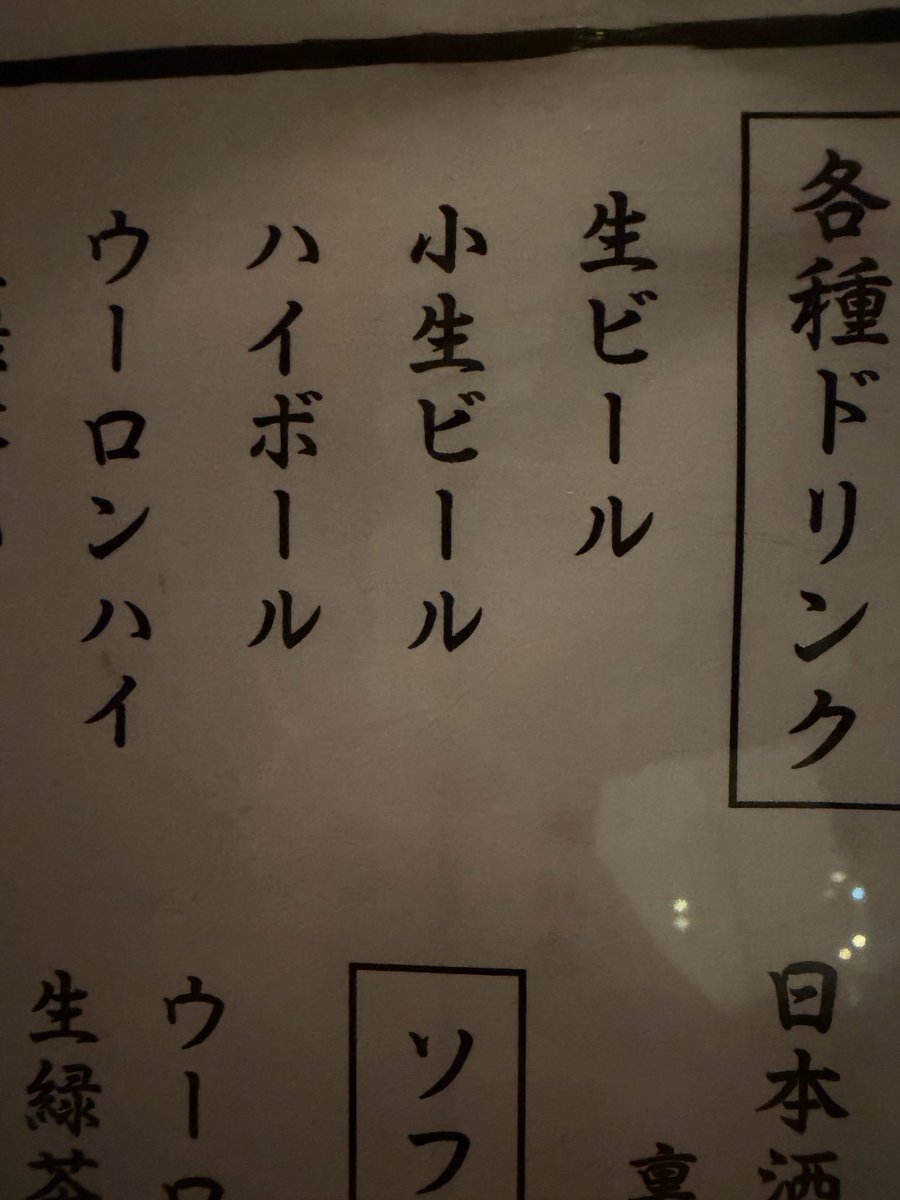 各種ドリンク
生ビール
小生ビール
ハイボール
ウーロンハイ
日本酒
裏
ソフ
ウーロ
生緑茶